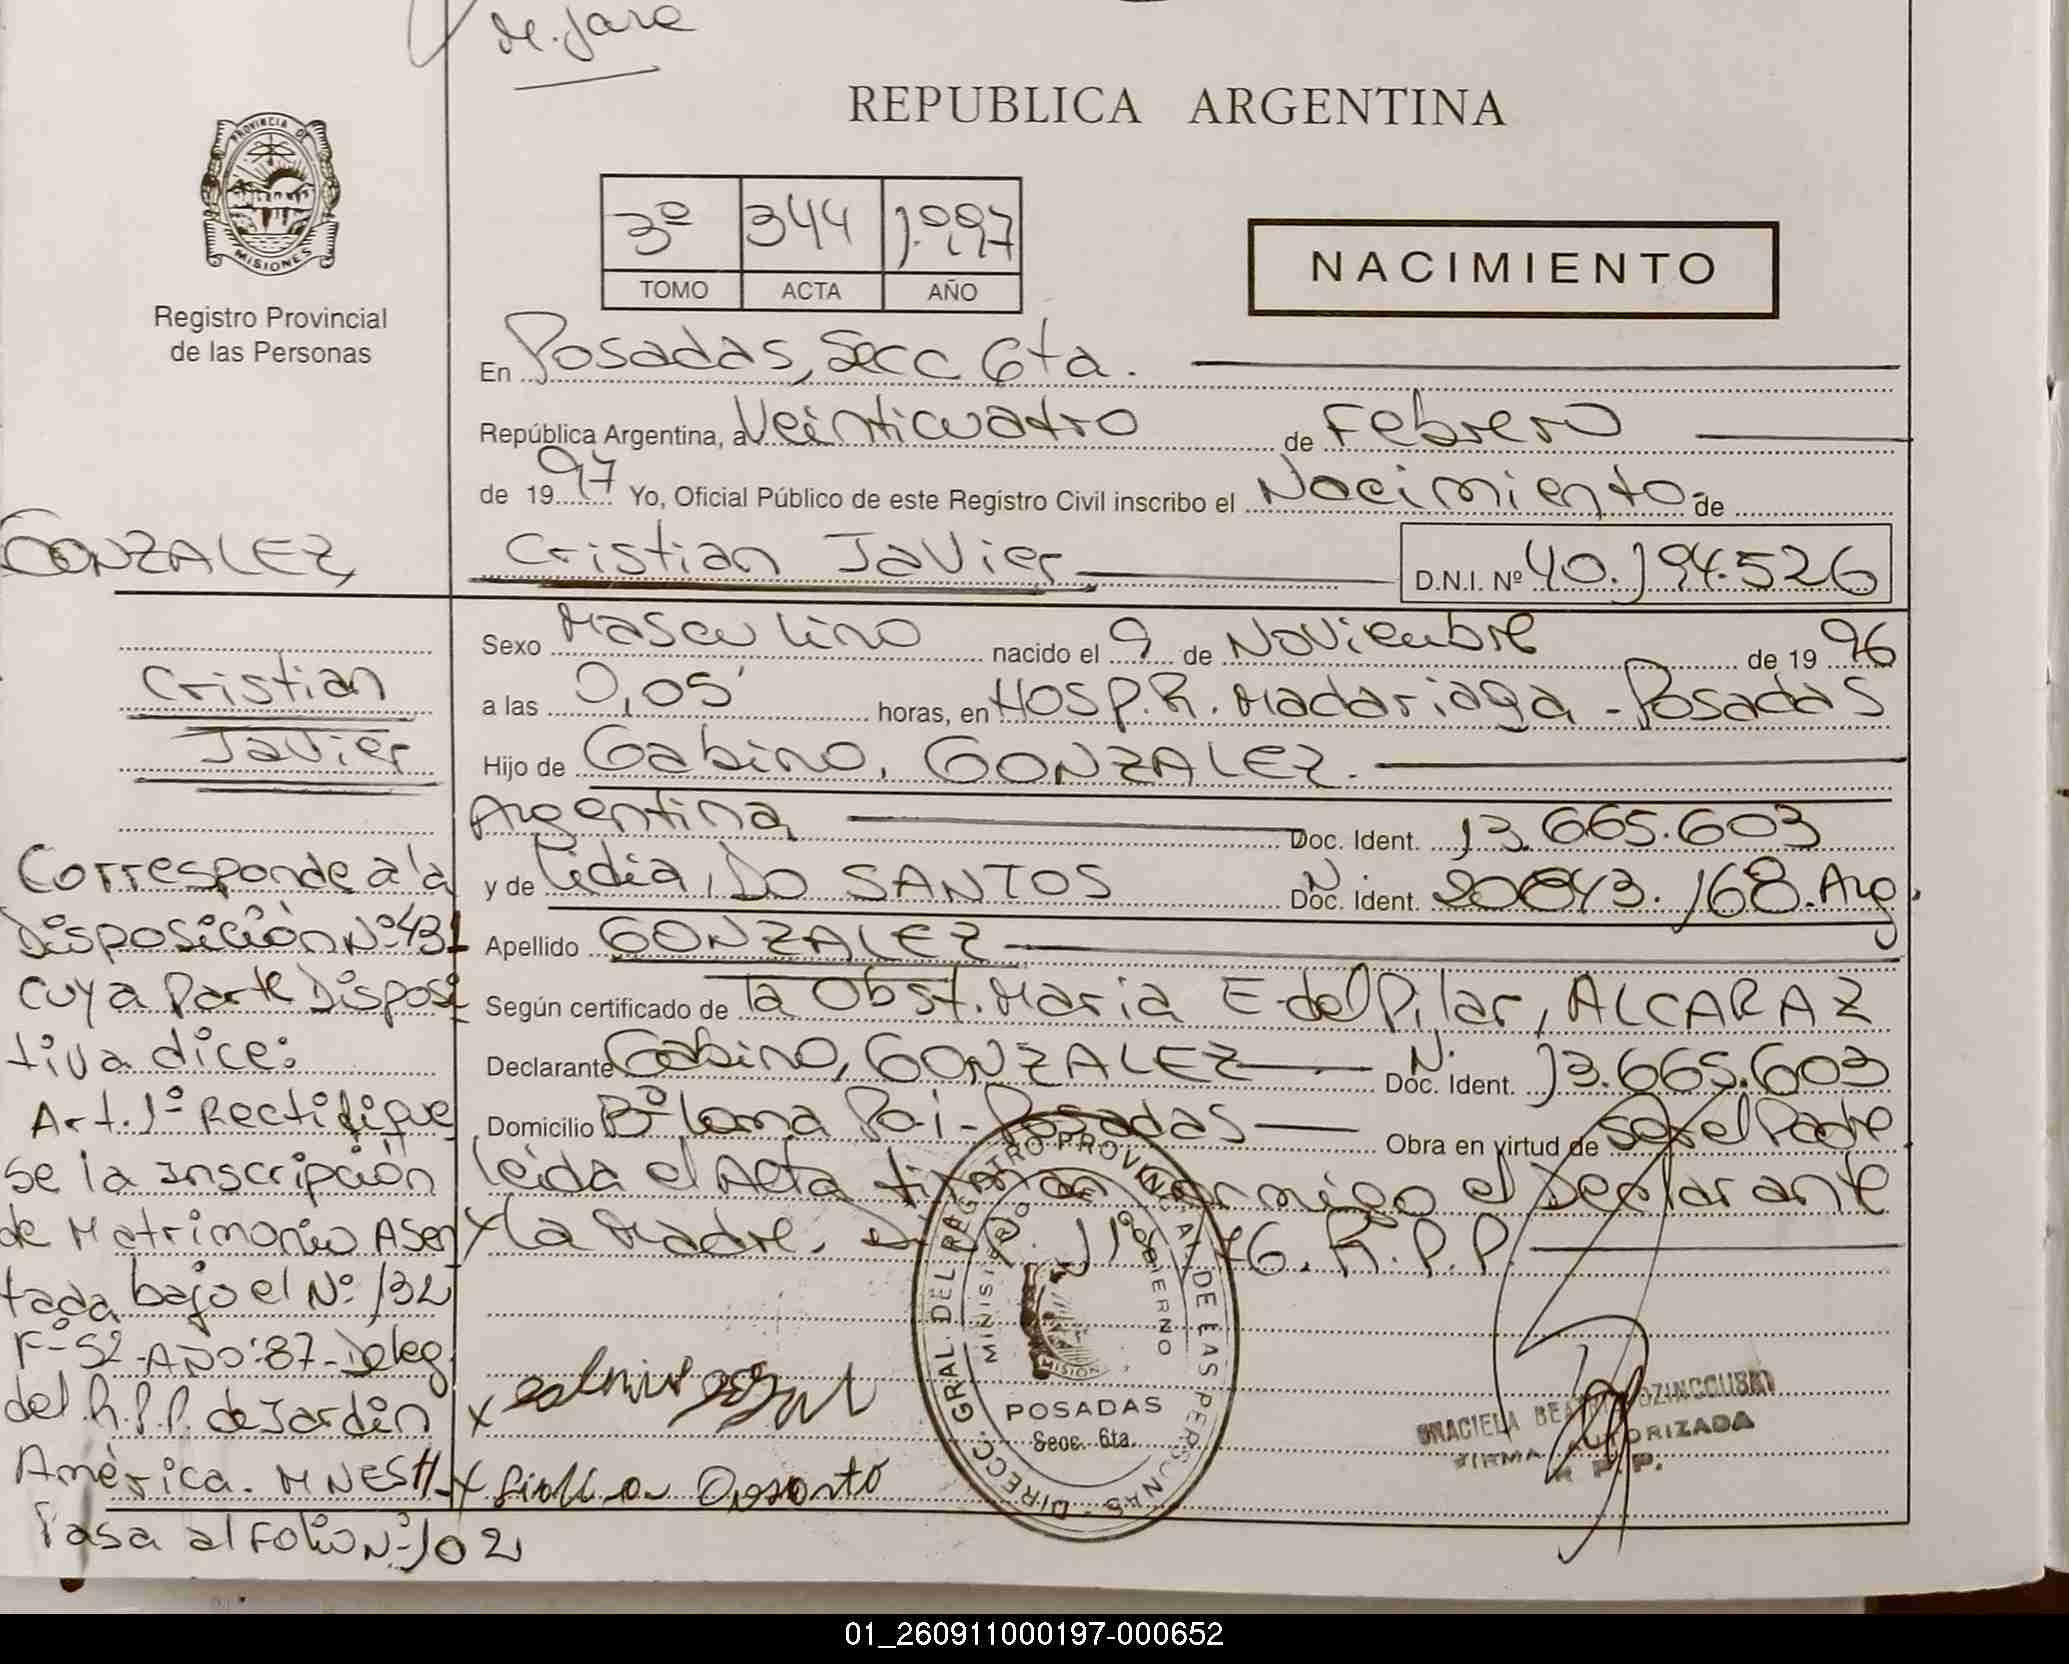 de.jare
REPUBLICA ARGENTINA
PROVINCIA DE
MISIONES
Registro Provincial
de las Personas
3º 344 1.997
TOMO ACTA AÑO
NACIMIENTO
En Posadas, Secc 6ta.
República Argentina, a Veinticuatro de Febrero
de 1997 Yo, Oficial Público de este Registro Civil inscribo el Nacimiento de
GONZALEZ,
Cristian Javier D.N.I. Nº 40.194.526
Sexo Masculino nacido el 9 de Noviembre de 1996
a las 0,05' horas, en Hosp. R. Madariaga - Posadas
Hijo de Gabino, GONZALEZ.
Argentina Doc. Ident. 13.665.603
y de Lidia, DO SANTOS N. Doc. Ident. 20.843.168. Arg.
Apellido GONZALEZ
Según certificado de la Obst. Maria E. del Pilar, ALCARAZ
Declarante Gabino, GONZALEZ N. Doc. Ident. 13.665.603
Domicilio Bº Loma Poi - Posadas Obra en virtud de Ser el Padre
Leida el Acta firman conmigo el Declarante
y la Madre. Disp. 11º/76. R.P.P.
Cristian
Javier
Corresponde a la
Disposición Nº 431
cuya Parte Disposi
tiva dice:
Art. 1º Rectifique
se la inscripción
de Matrimonio Asen
tada bajo el Nº 132
Fº 52 - AÑO: 87 - Deleg.
del R.P.P. de Jardin
América. MNESH.
Pasa al Folio Nº 102
DIRECC. GRAL. DEL REGISTRO PROVINCIAL DE LAS PERSONAS
MINISTERIO DE GOBIERNO
MISIONES
POSADAS
Secc. 6ta.
GRACIELA BEATRIZ
FIRMA AUTORIZADA
R. P. P.
01_260911000197-000652